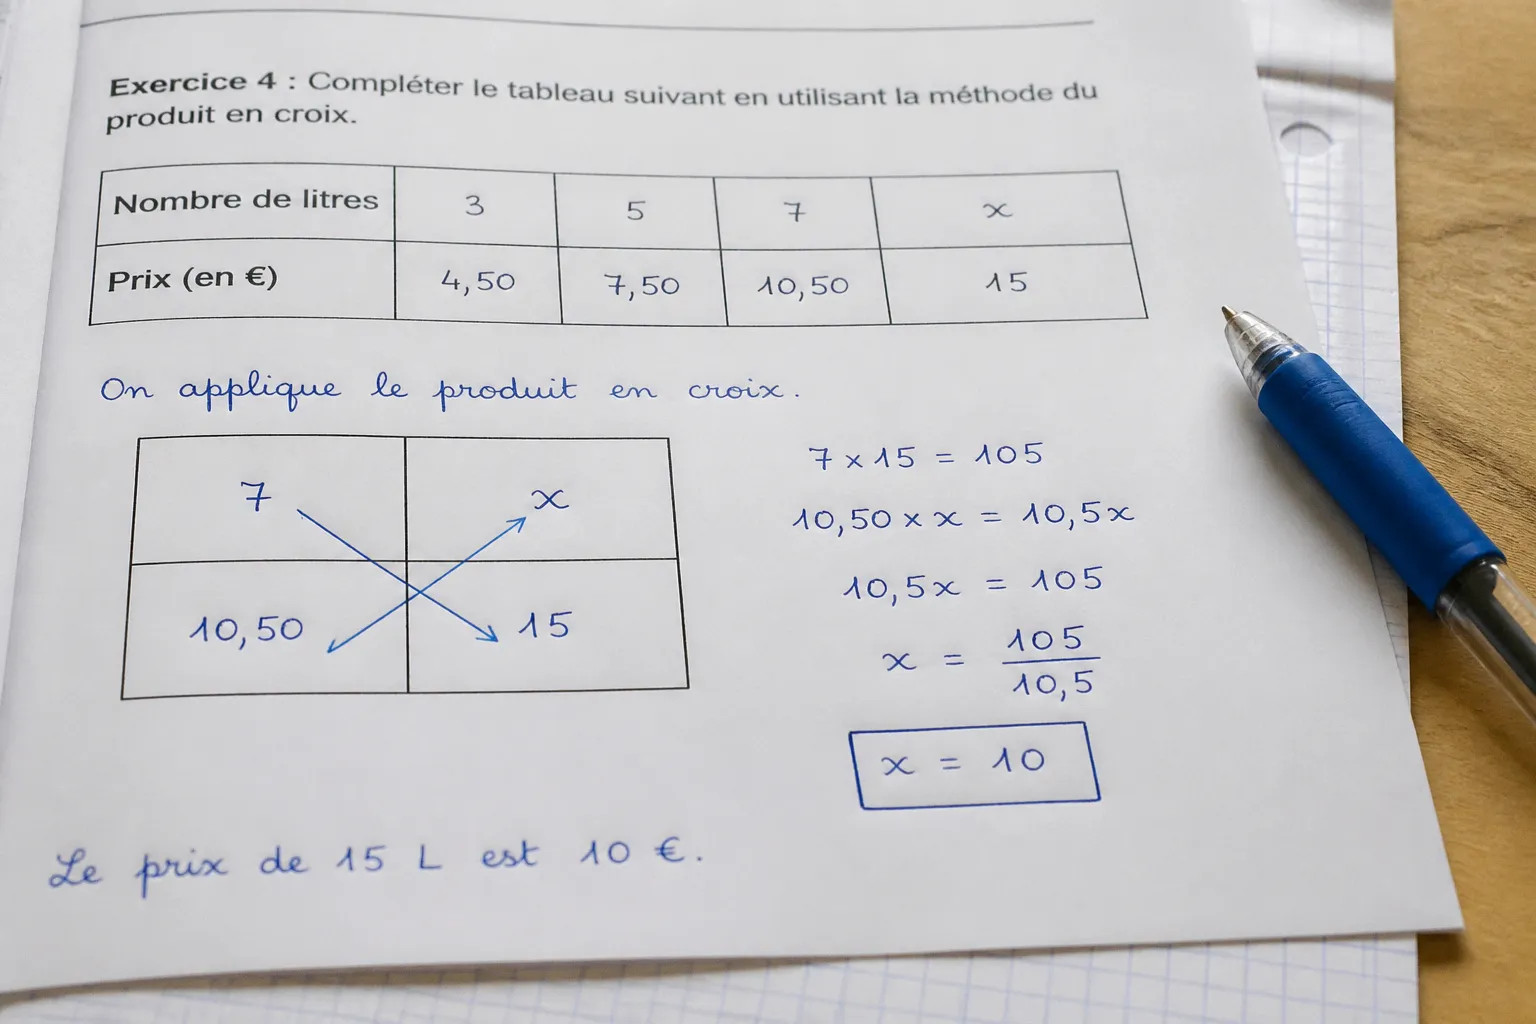 Exercice 4 : Compléter le tableau suivant en utilisant la méthode du
produit en croix.
Nombre de litres 3 5 7 x
Prix (en €) 4,50 7,50 10,50 15
On applique le produit en croix.
7 x
10,50 15
7 × 15 = 105
10,50 × x = 10,5x
10,5x = 105
x = 105/10,5
x = 10
Le prix de 15 L est 10 €.